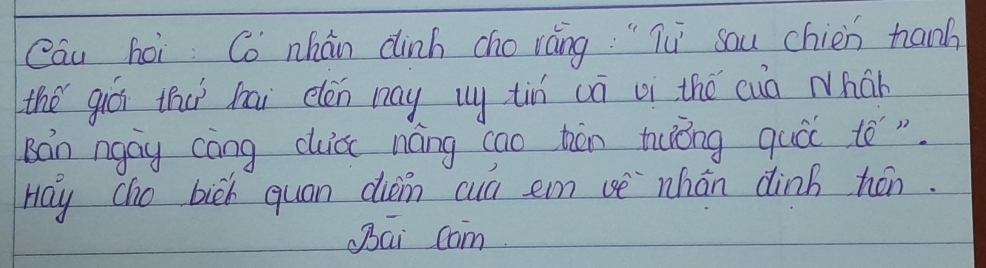 Câu hỏi : Có nhận định cho rằng : "Từ sau chiến tranh
thế giới thứ hai đến nay uy tín và vị thế của Nhật
Bản ngày càng được nâng cao trên trường quốc tế".
Hãy cho biết quan điểm của em về nhận định trên.
Bài làm